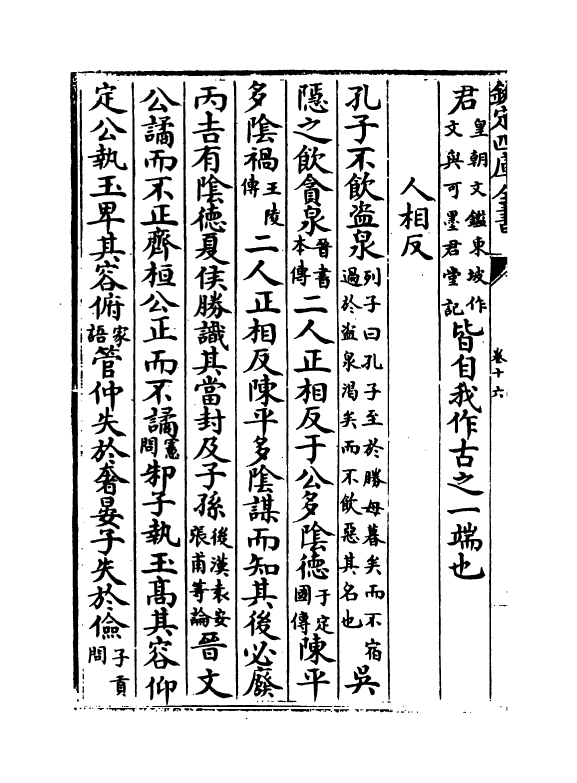 欽定四庫全書
卷十六
君皇朝文鑑東坡作文與可墨君堂記皆自我作古之一端也
人相反
孔子不飲盗泉列子曰孔子至於勝母暮矣而不宿過於盗泉渴矣而不飲惡其名也吳
隱之飲貪泉晉書本傳二人正相反于公多陰德于定國傳陳平
多陰禍王陵傳二人正相反陳平多陰謀而知其後必廢
丙吉有陰德夏侯勝識其當封及子孫後漢袁安張甫等論晉文
公譎而不正齊桓公正而不譎憲問邾子執玉髙其容仰
定公執玉卑其容俯家語管仲失於奢晏子失於儉子貢問